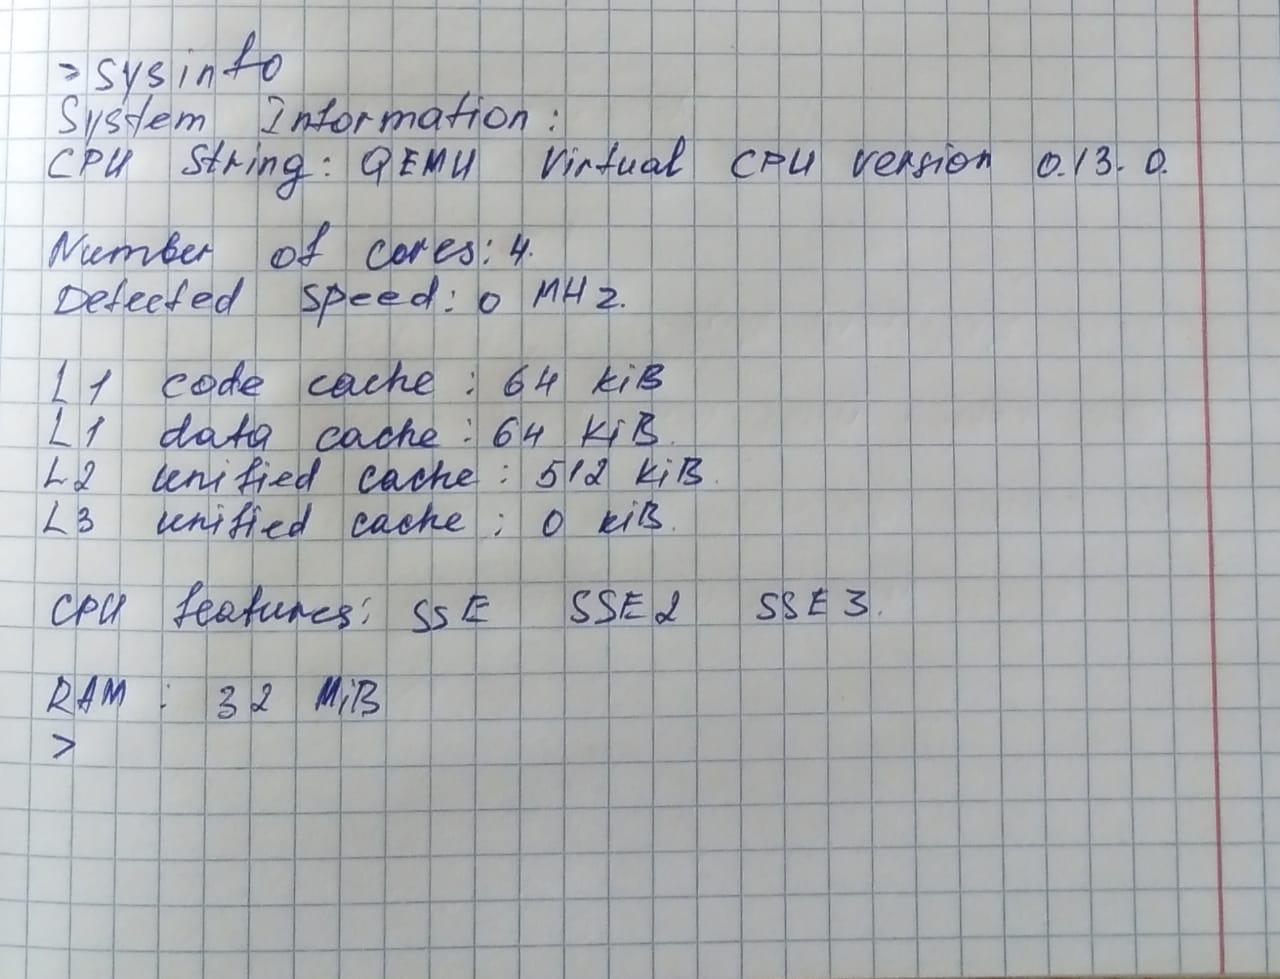 > sysinfo
System Information:
CPU String: QEMU Virtual CPU version 0.13.0.
Number of cores: 4.
Detected speed: 0 MHz.
L1 code cache: 64 KiB
L1 data cache: 64 KiB.
L2 unified cache: 512 KiB.
L3 unified cache: 0 KiB.
CPU features: SSE SSE2 SSE3.
RAM: 32 MiB
>